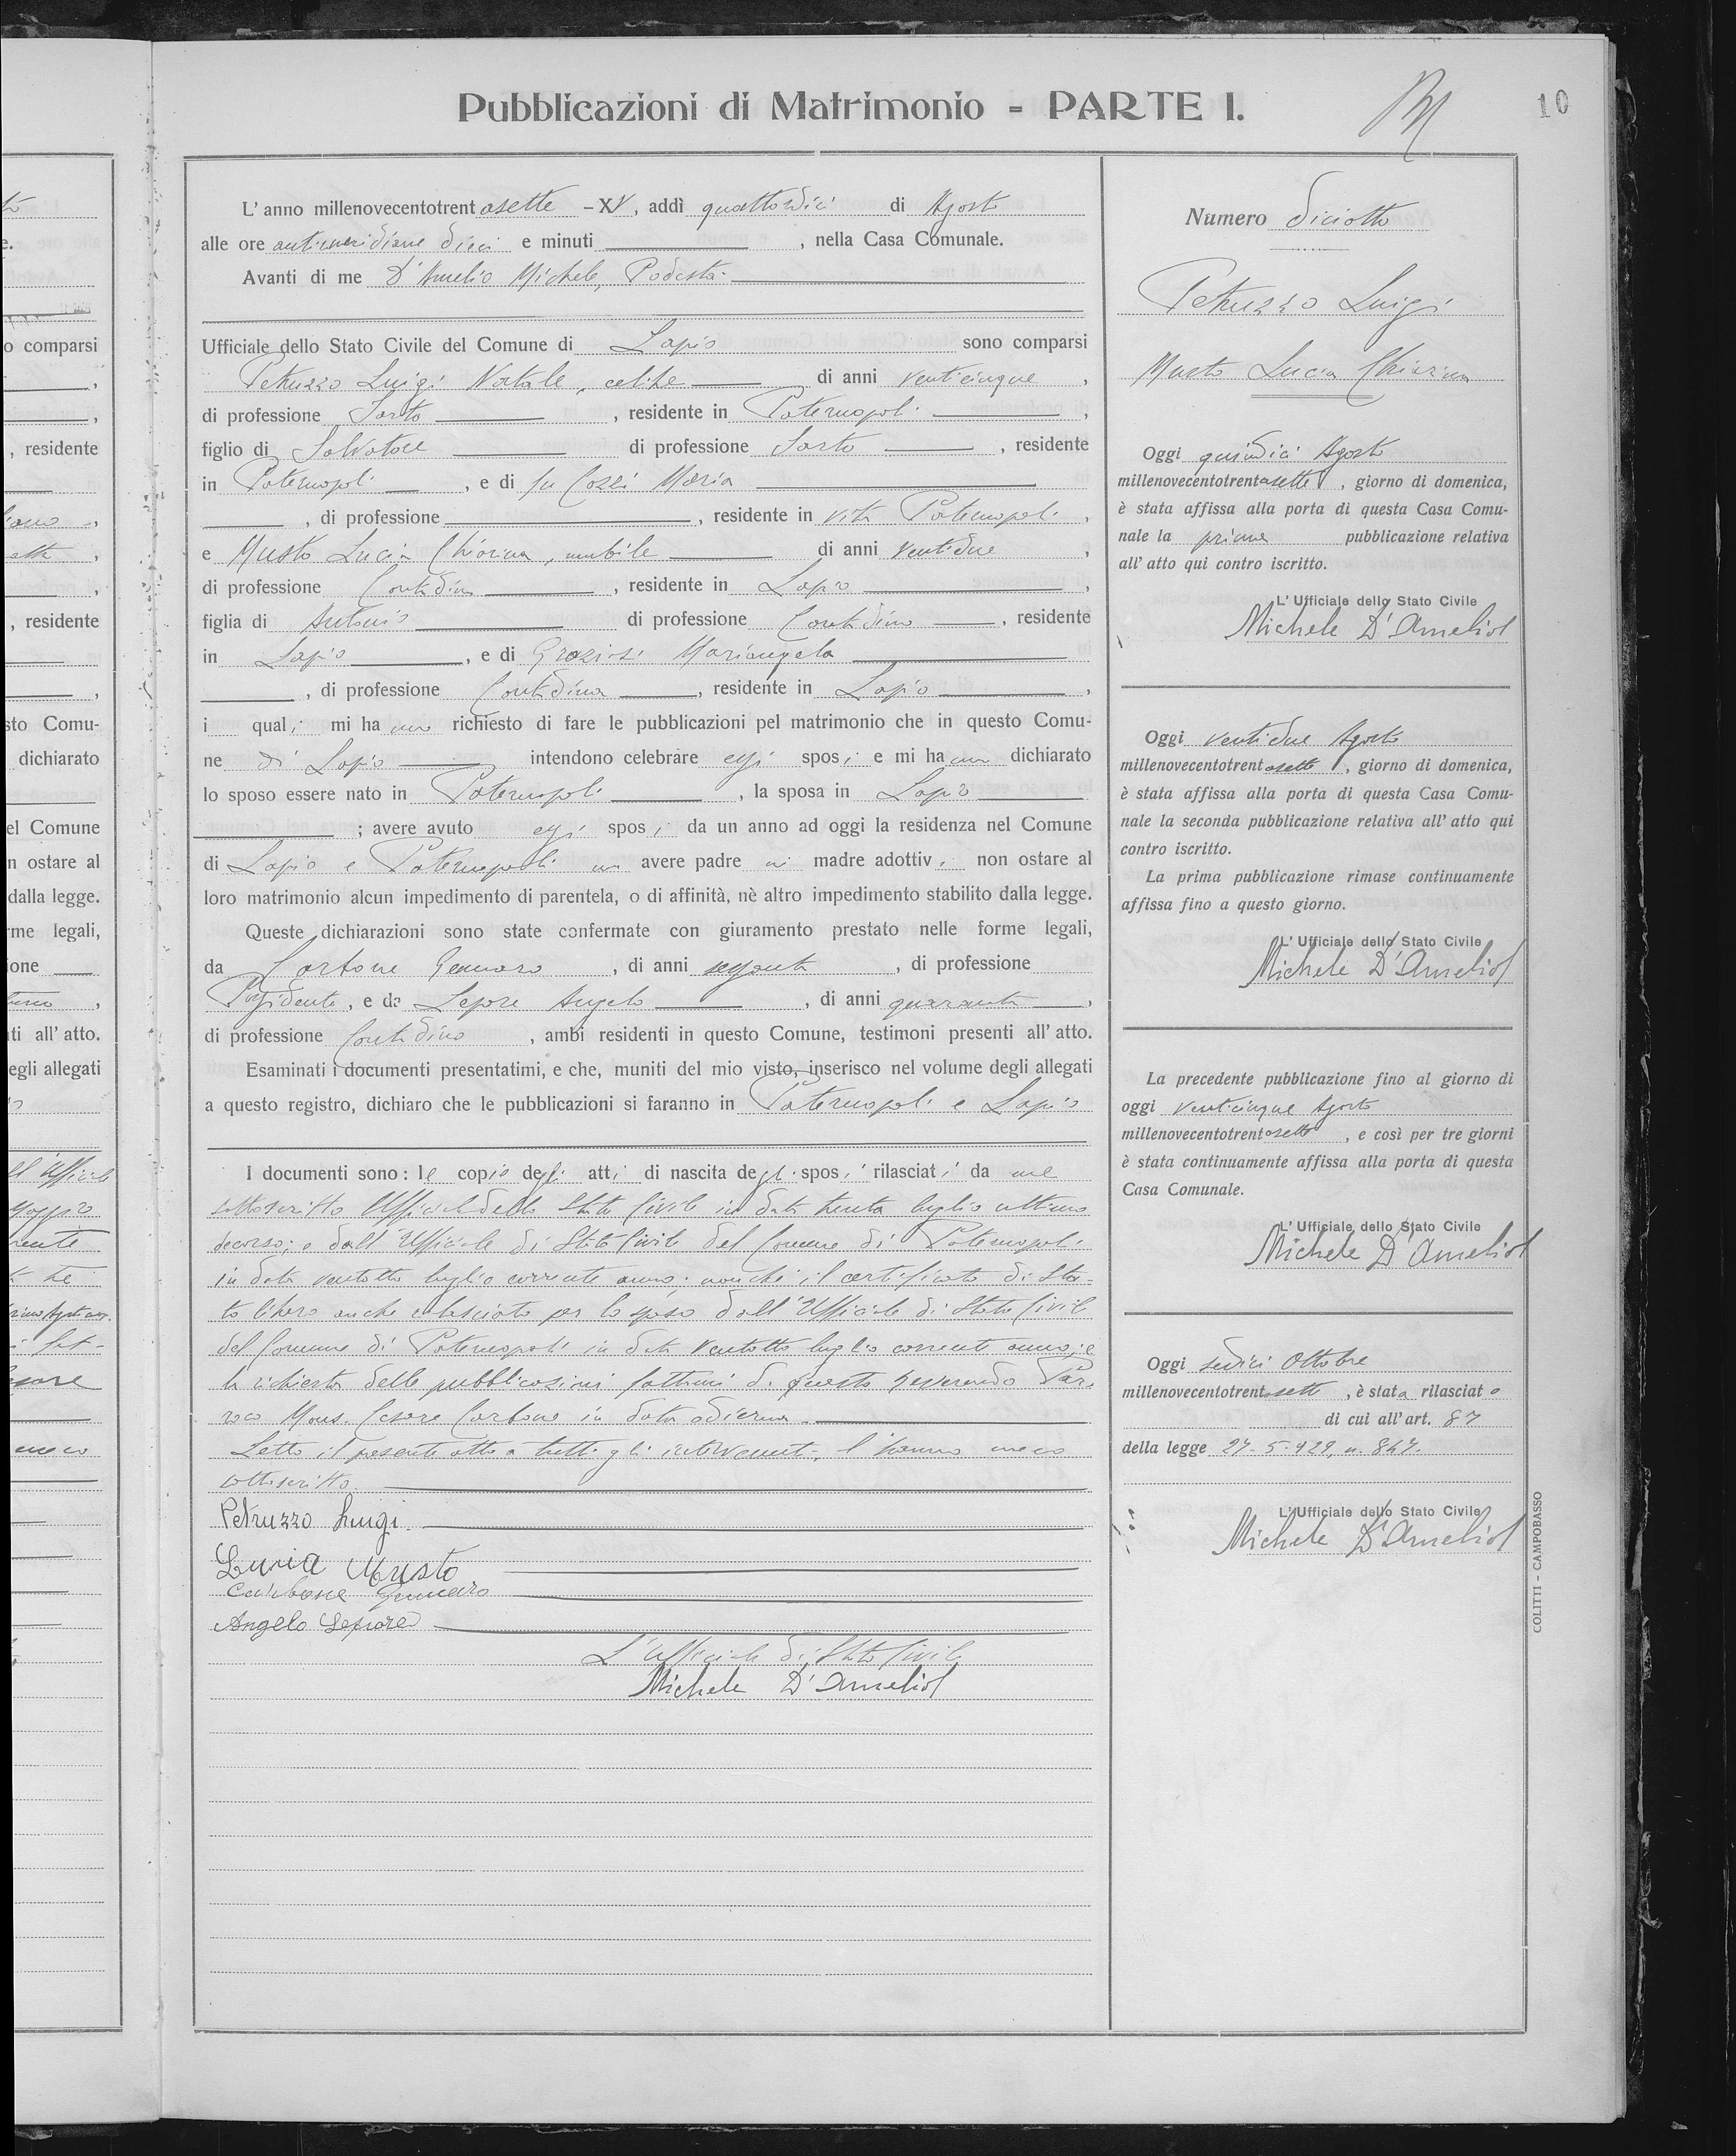 Pubblicazioni di Matrimonio - PARTE I.
10
L'anno millenovecentotrentasette - XV, addì quattordici di Agosto
alle ore antimeridiane dieci e minuti , nella Casa Comunale.
Avanti di me D'Amelio Michele, Podestà
Ufficiale dello Stato Civile del Comune di Lapio sono comparsi
Petruzzo Luigi Natale, celibe di anni venticinque ,
di professione Sarto , residente in Paternopoli ,
figlio di Salvatore di professione Sarto , residente
in Paternopoli , e di fu Cozzi Maria
, di professione , residente in vita Paternopoli ,
e Musto Lucia Chiarina, nubile di anni ventidue ,
di professione Contadina , residente in Lapio ,
figlia di Antonio di professione Contadino , residente
in Lapio , e di Graziosi Mariangela
, di professione Contadina , residente in Lapio ,
i quali mi hanno richiesto di fare le pubblicazioni pel matrimonio che in questo Comu-
ne di Lapio intendono celebrare essi sposi e mi hanno dichiarato
lo sposo essere nato in Paternopoli , la sposa in Lapio
; avere avuto essi sposi da un anno ad oggi la residenza nel Comune
di Lapio e Paternopoli non avere padre nè madre adottivi non ostare al
loro matrimonio alcun impedimento di parentela, o di affinità, nè altro impedimento stabilito dalla legge.
Queste dichiarazioni sono state confermate con giuramento prestato nelle forme legali,
da Carbone Gennaro , di anni sessanta , di professione
Possidente, e da Lepore Angelo , di anni quaranta ,
di professione Contadino , ambi residenti in questo Comune, testimoni presenti all'atto.
Esaminati i documenti presentatimi, e che, muniti del mio visto, inserisco nel volume degli allegati
a questo registro, dichiaro che le pubblicazioni si faranno in Paternopoli e Lapio
I documenti sono: le copie degli atti di nascita degli sposi rilasciati da me
sottoscritto Ufficiale dello Stato Civile in data trenta luglio ultimo
decorso; e dall'Ufficiale di Stato Civile del Comune di Paternopoli
in data ventotto luglio corrente anno; nonché il certificato di Sta-
to libero anche rilasciato per lo sposo dall'Ufficiale di Stato Civile
del Comune di Paternopoli in data ventotto luglio corrente anno; e
la richiesta delle pubblicazioni fattami da questo Reverendo Par-
roco Mons. Cesare Carbone in data odierna.
Letto il presente atto a tutti gli intervenuti, l'hanno meco
sottoscritto.
Petruzzo Luigi.
Lucia Musto
Carbone Gennaro
Angelo Lepore
L'Ufficiale di Stato Civile
Michele D'Amelio
Numero diciotto
Petruzzo Luigi
Musto Lucia Chiarina
Oggi quindici Agosto
millenovecentotrentasette , giorno di domenica,
è stata affissa alla porta di questa Casa Comu-
nale la prima pubblicazione relativa
all'atto qui contro iscritto.
L'Ufficiale dello Stato Civile
Michele D'Amelio
Oggi ventidue Agosto
millenovecentotrentasette , giorno di domenica,
è stata affissa alla porta di questa Casa Comu-
nale la seconda pubblicazione relativa all'atto qui
contro iscritto.
La prima pubblicazione rimase continuamente
affissa fino a questo giorno.
L'Ufficiale dello Stato Civile
Michele D'Amelio
La precedente pubblicazione fino al giorno di
oggi venticinque Agosto
millenovecentotrentasette , e così per tre giorni
è stata continuamente affissa alla porta di questa
Casa Comunale.
L'Ufficiale dello Stato Civile
Michele D'Amelio
Oggi sedici Ottobre
millenovecentotrentasette , è stata rilasciato
di cui all'art. 87
della legge 27-5-929, n. 847.
L'Ufficiale dello Stato Civile
Michele D'Amelio
COLITTI - CAMPOBASSO